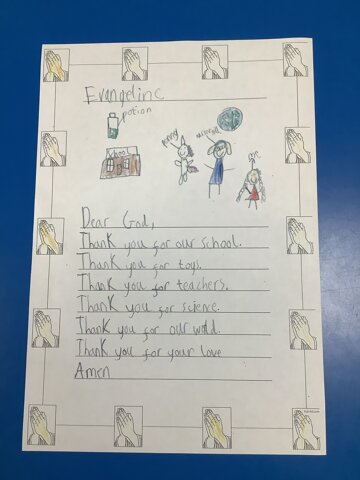 Evangeline
potion
School
Dear God,
Thank you for our school.
Thank you for toys.
Thank you for teachers.
Thank you for science.
Thank you for our world.
Thank you for your love
Amen